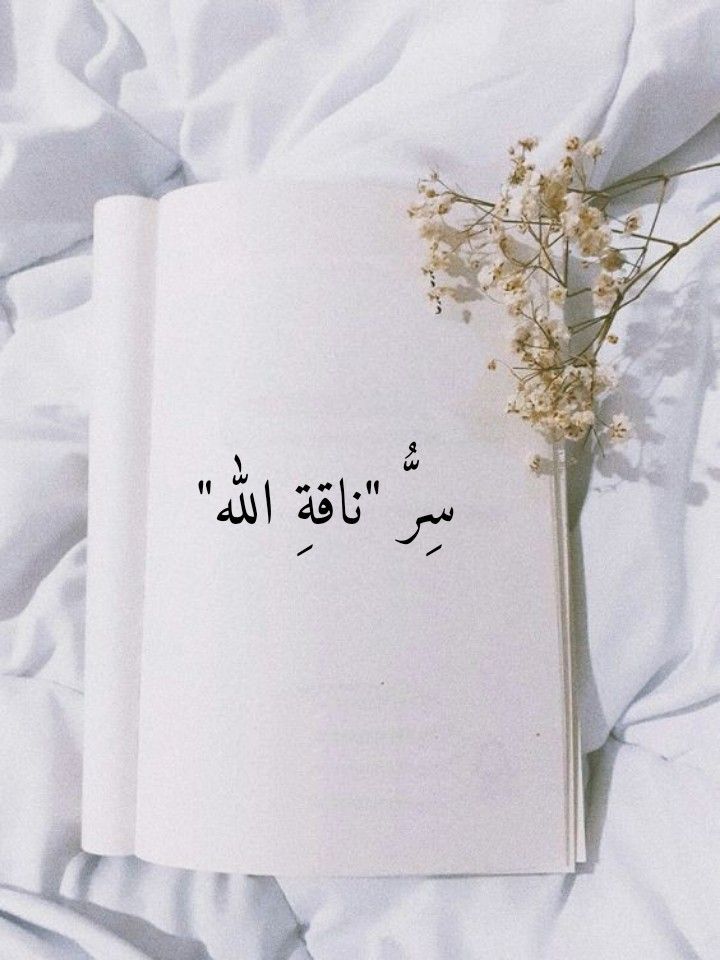 سِرُّ "ناقةِ الله"